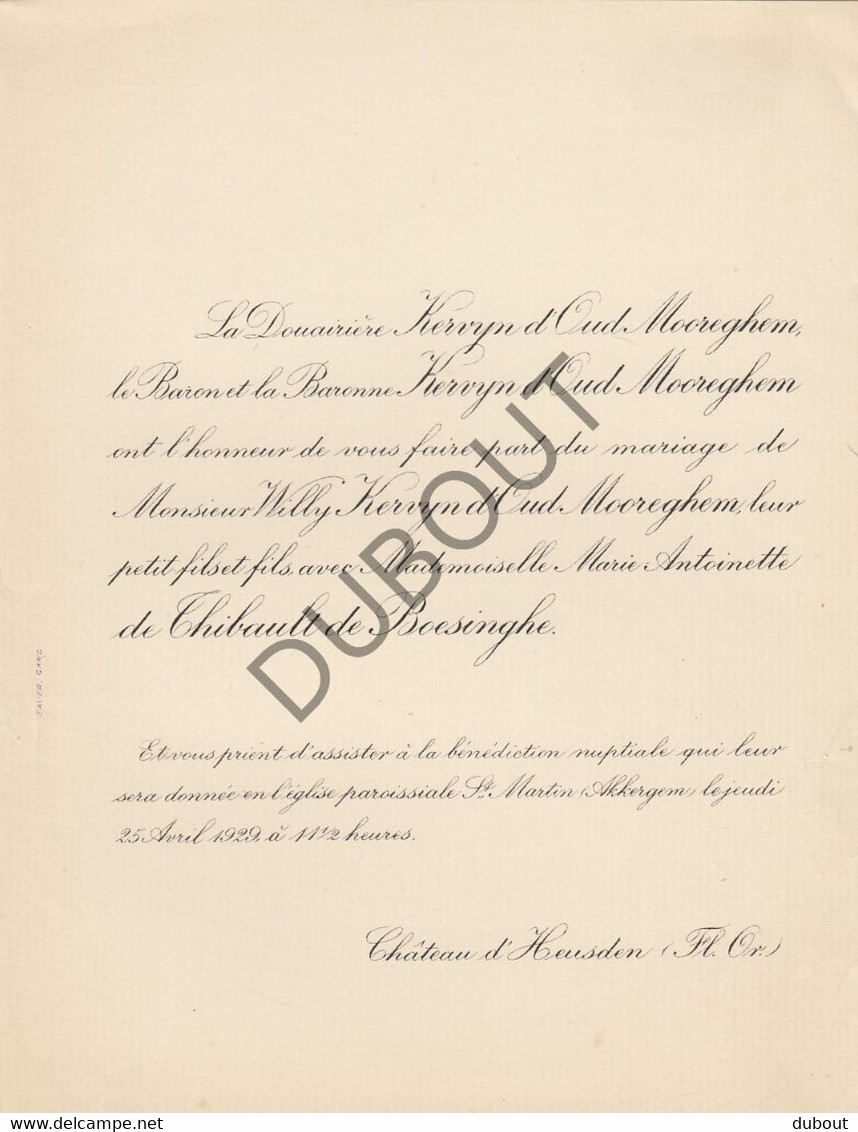 La Douairière Kervyn d'Oud Mooreghem,
le Baron et la Baronne Kervyn d'Oud Mooreghem
ont l'honneur de vous faire part du mariage de
Monsieur Willy Kervyn d'Oud Mooreghem, leur
petit-fils et fils, avec Mademoiselle Marie Antoinette
de Thibault de Boesinghe.
Et vous prient d'assister à la bénédiction nuptiale qui leur
sera donnée en l'église paroissiale St. Martin (Akkergem) le jeudi
25 Avril 1929, à 11 1/2 heures.
Château d'Heusden (Fl. Or.)
GAND
DUBOUT
delcampe.net
dubout